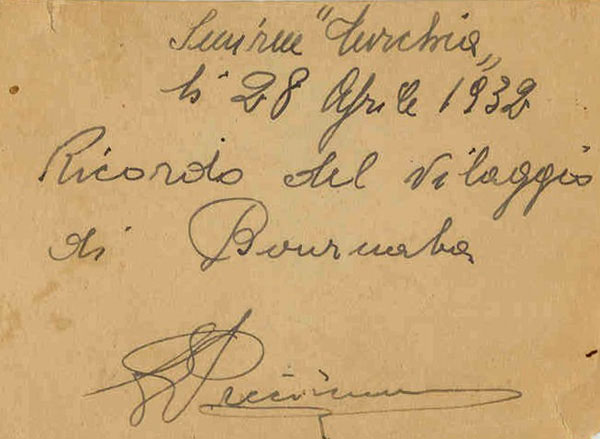 Smirne "Turchia„
li 28 Aprile 1932
Ricordo del vilaggio
di Bournaba